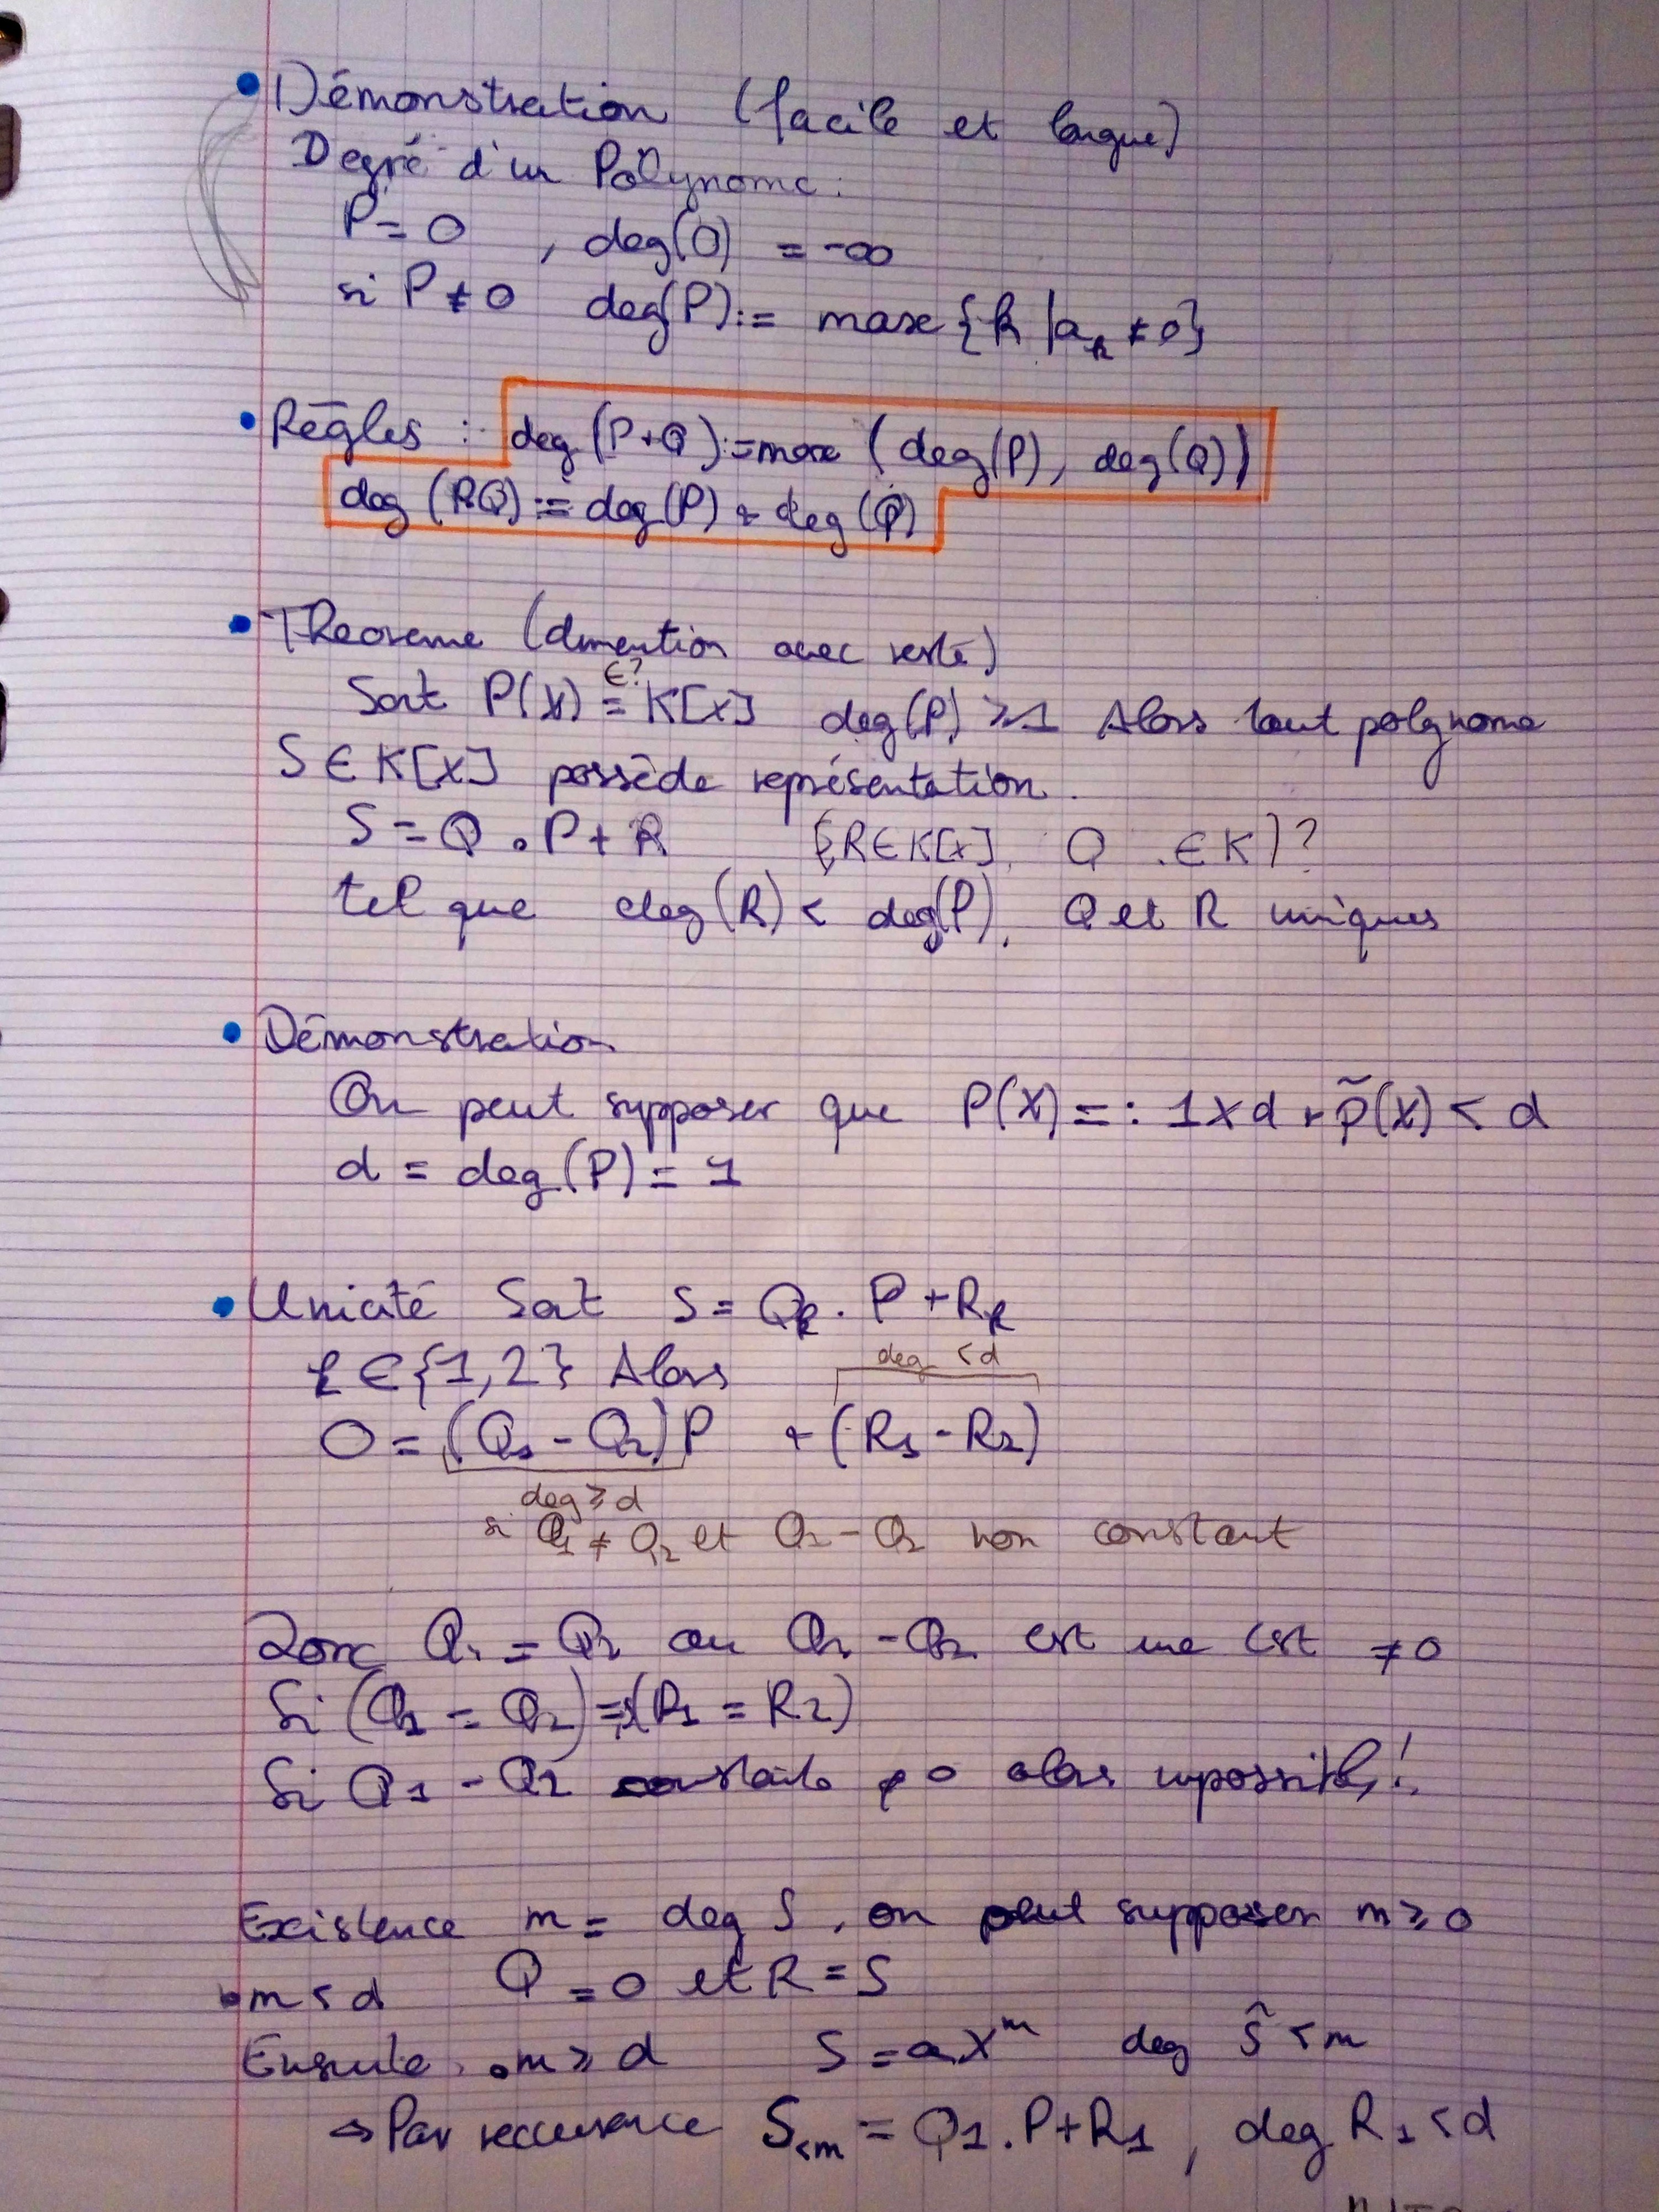 Démonstration (facile et longue)
Degré d'un Polynome :
P = 0 , deg(0) = -∞
si P ≠ 0 deg(P) := max {k | a_k ≠ 0}
Règles : deg (P+Q) := max (deg(P), deg(Q))
deg (PQ) := deg(P) + deg(Q)
Theoreme (dimention avec reste)
∈?
Soit P(X) = K[X] deg(P) ≥ 1 Alors tout polynome
S ∈ K[X] possède représentation.
S = Q . P + R (R ∈ K[X], Q ∈ K) ?
tel que deg(R) < deg(P), Q et R uniques
Démonstration
On peut supposer que P(X) =: 1Xd + P̃(X) < d
d = deg(P) = 1
Unicité Soit S = Q_k . P + R_k
k ∈ {1,2} Alors
deg < d
0 = (Q_1 - Q_2)P + (R_1 - R_2)
deg ≥ d
si Q_1 ≠ Q_2 et Q_1 - Q_2 non constant
Donc Q_1 = Q_2 ou Q_1 - Q_2 est une cst ≠ 0
Si (Q_1 = Q_2) ⇒ (R_1 = R_2)
Si Q_1 - Q_2 constante ≠ 0 alors impossible !
Existence m = deg S, on peut supposer m ≥ 0
• m < d Q = 0 et R = S
Ensuite . m ≥ d S = aX^m deg S̃ < m
→ Par reccurence S_<m = Q_1 . P + R_1 , deg R_1 < d